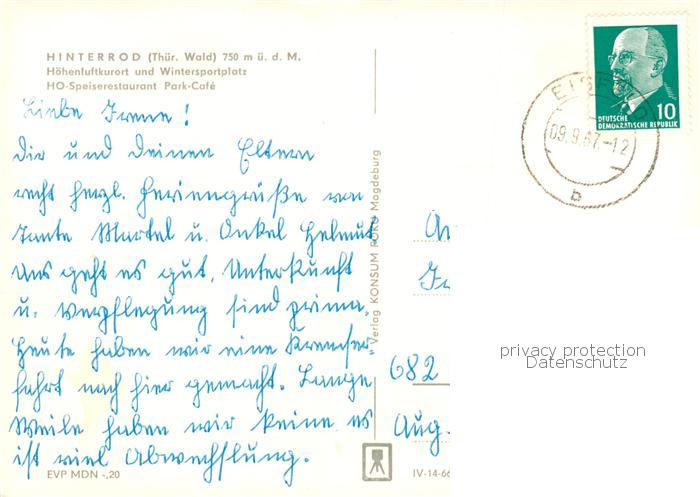 HINTERROD (Thür. Wald) 750 m ü. d. M.
Höhenluftkurort und Wintersportplatz
HO-Speiserestaurant Park-Café
Liebe Irene!
Dir und Deinen Eltern
recht herzl. Feriengrüße von
Tante Martel u. Onkel Helmut
Uns geht es gut, Unterkunft
u. Verpflegung sind prima.
Heute haben wir eine Kremser
fahrt nach hier gemacht. Lange
Weile haben wir keine es
ist viel Abwechslung.
EVP MDN -,20
Verlag KONSUM FOKO Magdeburg
IV-14-66
682
Aug.
DEUTSCHE
DEMOKRATISCHE REPUBLIK
10
09.9.67.-12
b
privacy protection
Datenschutz